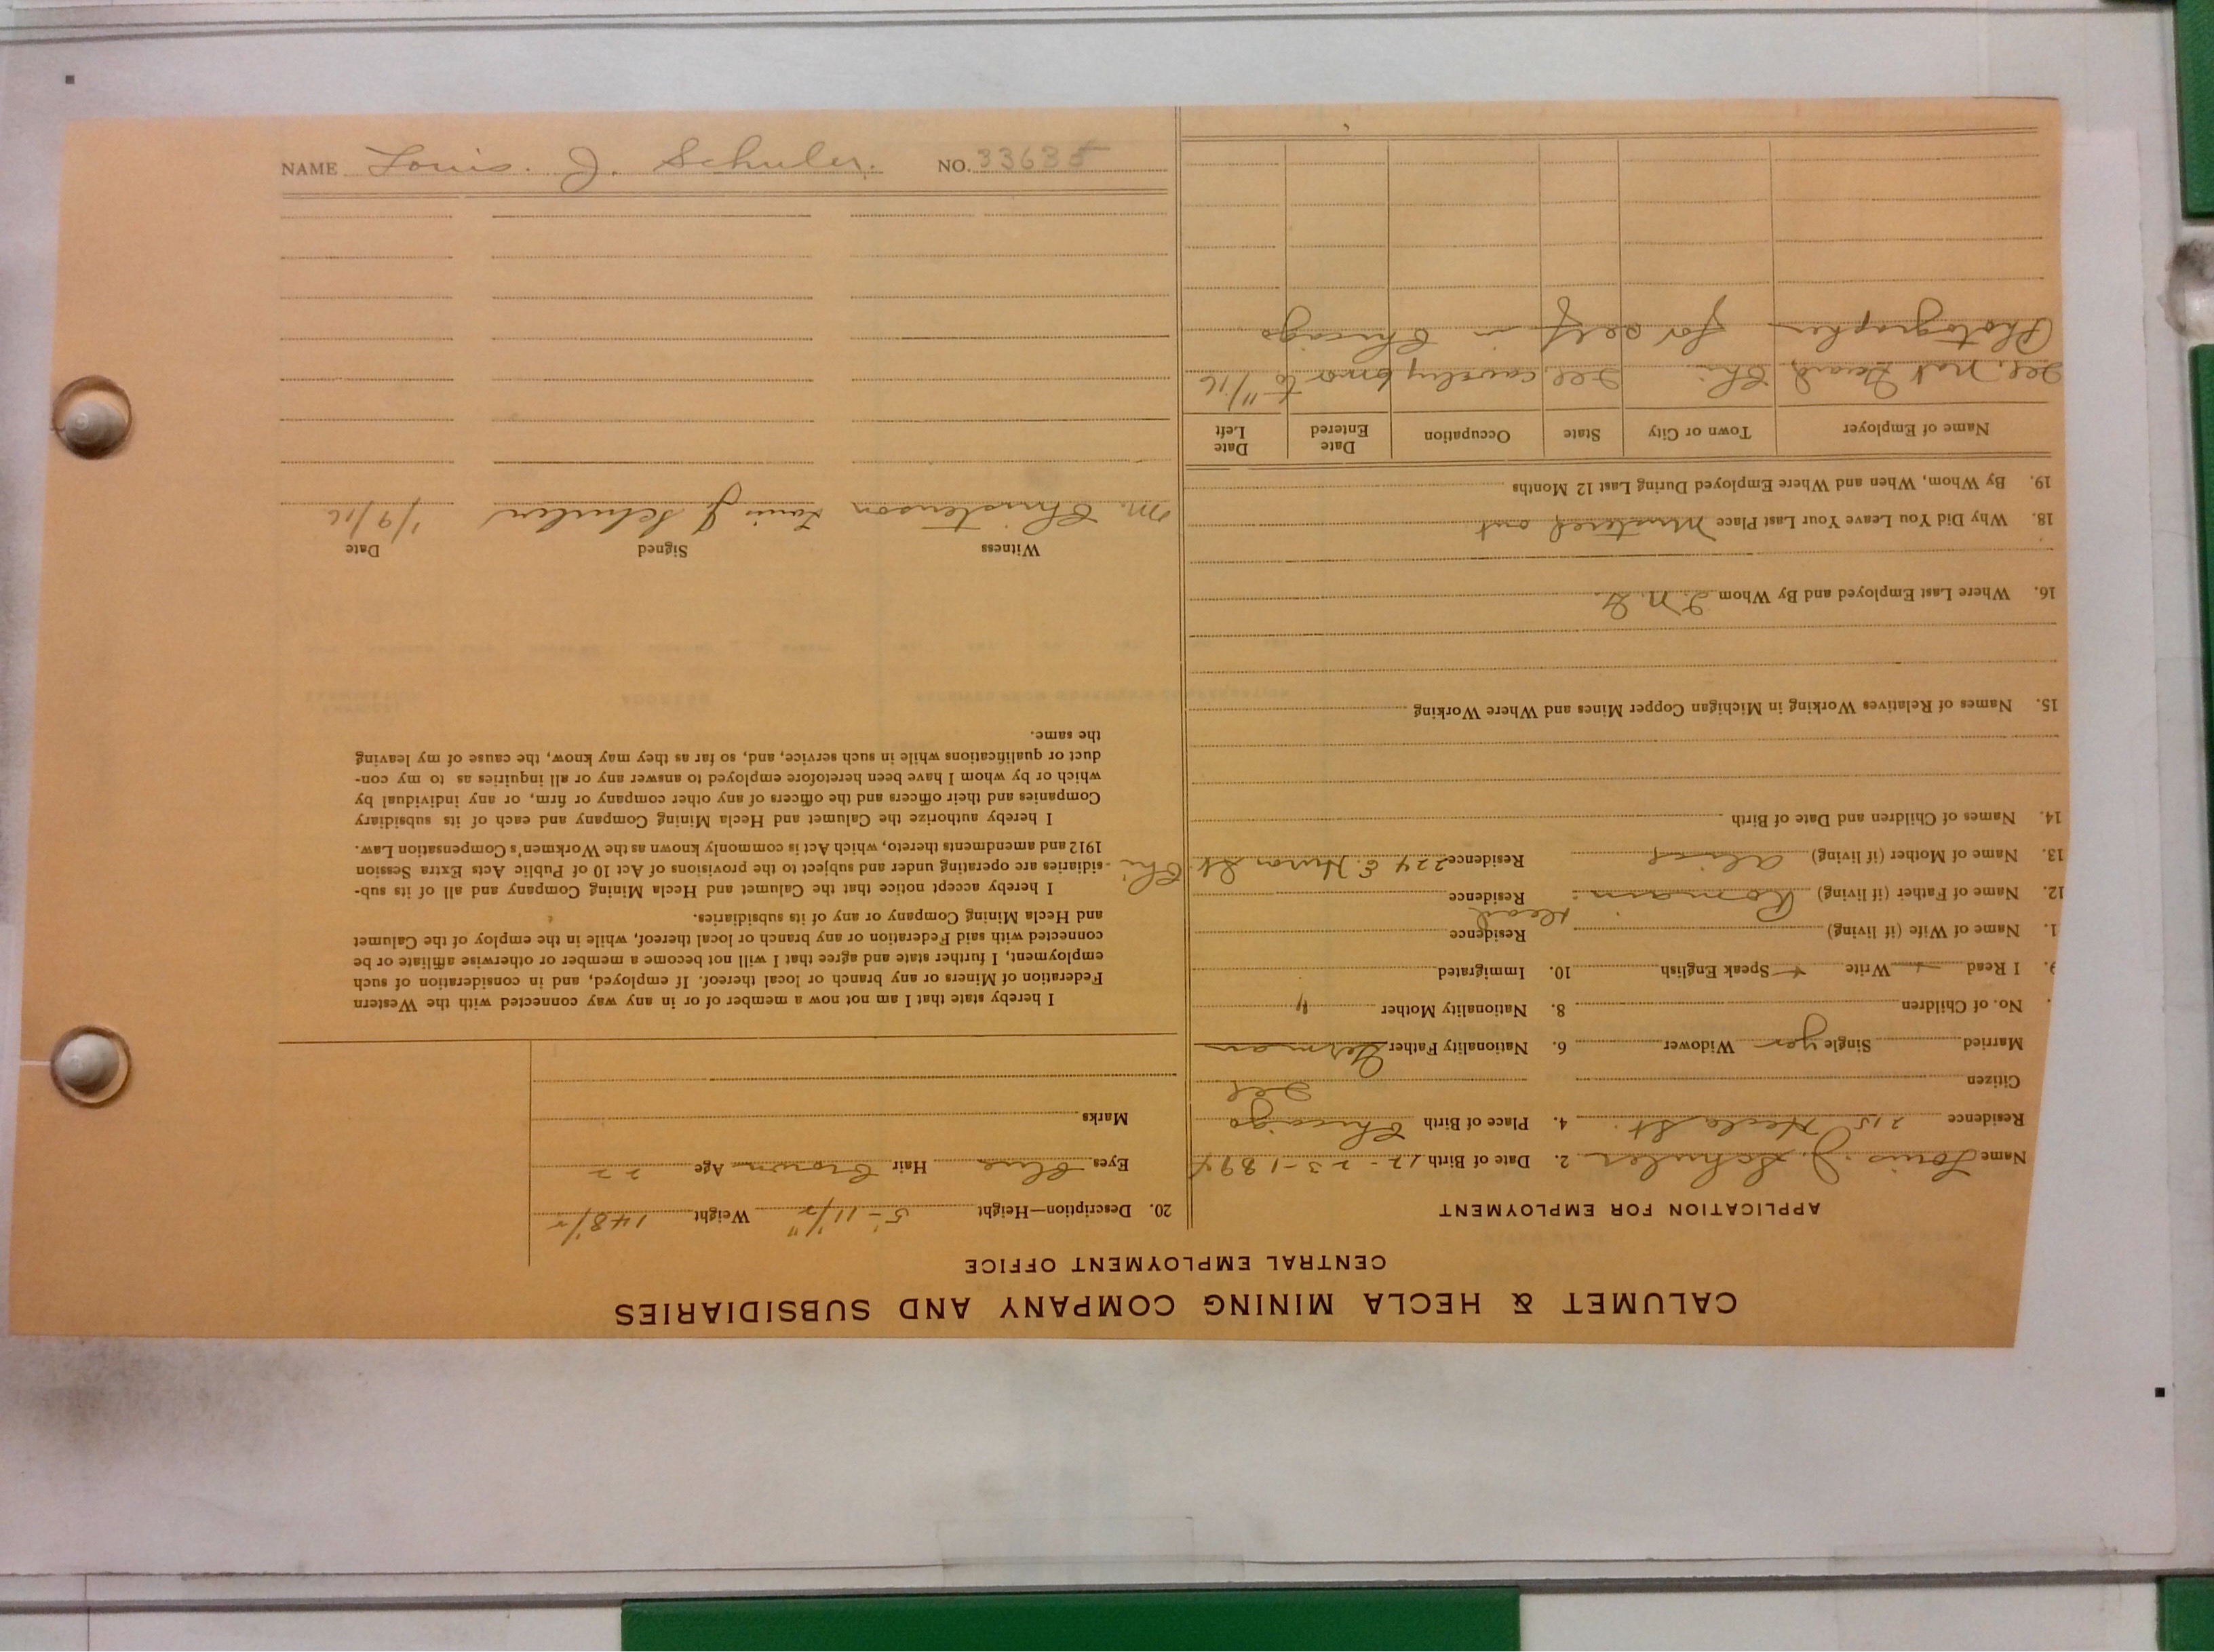 NAME Louis. J. Schuler. NO. 33635
CALUMET & HECLA MINING COMPANY AND SUBSIDIARIES
CENTRAL EMPLOYMENT OFFICE
APPLICATION FOR EMPLOYMENT
Name Louis. J. Schuler 2. Date of Birth 12-23-1894
Residence 215 Hecla St. 4. Place of Birth Chicago
Citizen Ill
Married Single yes Widower 6. Nationality Father German
No. of Children 8. Nationality Mother "
9. I Read Write Speak English 10. Immigrated
1. Name of Wife (if living) Residence
12. Name of Father (if living) Romain Dead Residence
13. Name of Mother (if living) Residence 224 E. Huron St. Chi
14. Names of Children and Date of Birth
15. Names of Relatives Working in Michigan Copper Mines and Where Working
16. Where Last Employed and By Whom I. N. G.
18. Why Did You Leave Your Last Place Mustered out
19. By Whom, When and Where Employed During Last 12 Months
Name of Employer Town or City State Occupation Date Entered Date Left
Ill. Nat Guard, Chi. Ill. cavalry 6 mo to 11/16
Photographer for self in Chicago
20. Description—Height 5'-11 1/2" Weight 148 1/2
Eyes Blue Hair Brown Age 22
Marks
I hereby state that I am not now a member of or in any way connected with the Western
Federation of Miners or any branch or local thereof. If employed, and in consideration of such
employment, I further state and agree that I will not become a member or otherwise affiliate or be
connected with said Federation or any branch or local thereof, while in the employ of the Calumet
and Hecla Mining Company or any of its subsidiaries.
I hereby accept notice that the Calumet and Hecla Mining Company and all of its sub-
sidiaries are operating under and subject to the provisions of Act 10 of Public Acts Extra Session
1912 and amendments thereto, which Act is commonly known as the Workmen's Compensation Law.
I hereby authorize the Calumet and Hecla Mining Company and each of its subsidiary
Companies and their officers and the officers of any other company or firm, or any individual by
which or by whom I have been heretofore employed to answer any or all inquiries as to my con-
duct or qualifications while in such service, and, so far as they may know, the cause of my leaving
the same.
Witness Signed Date
M. Christenson Louis J. Schuler 1/9/16